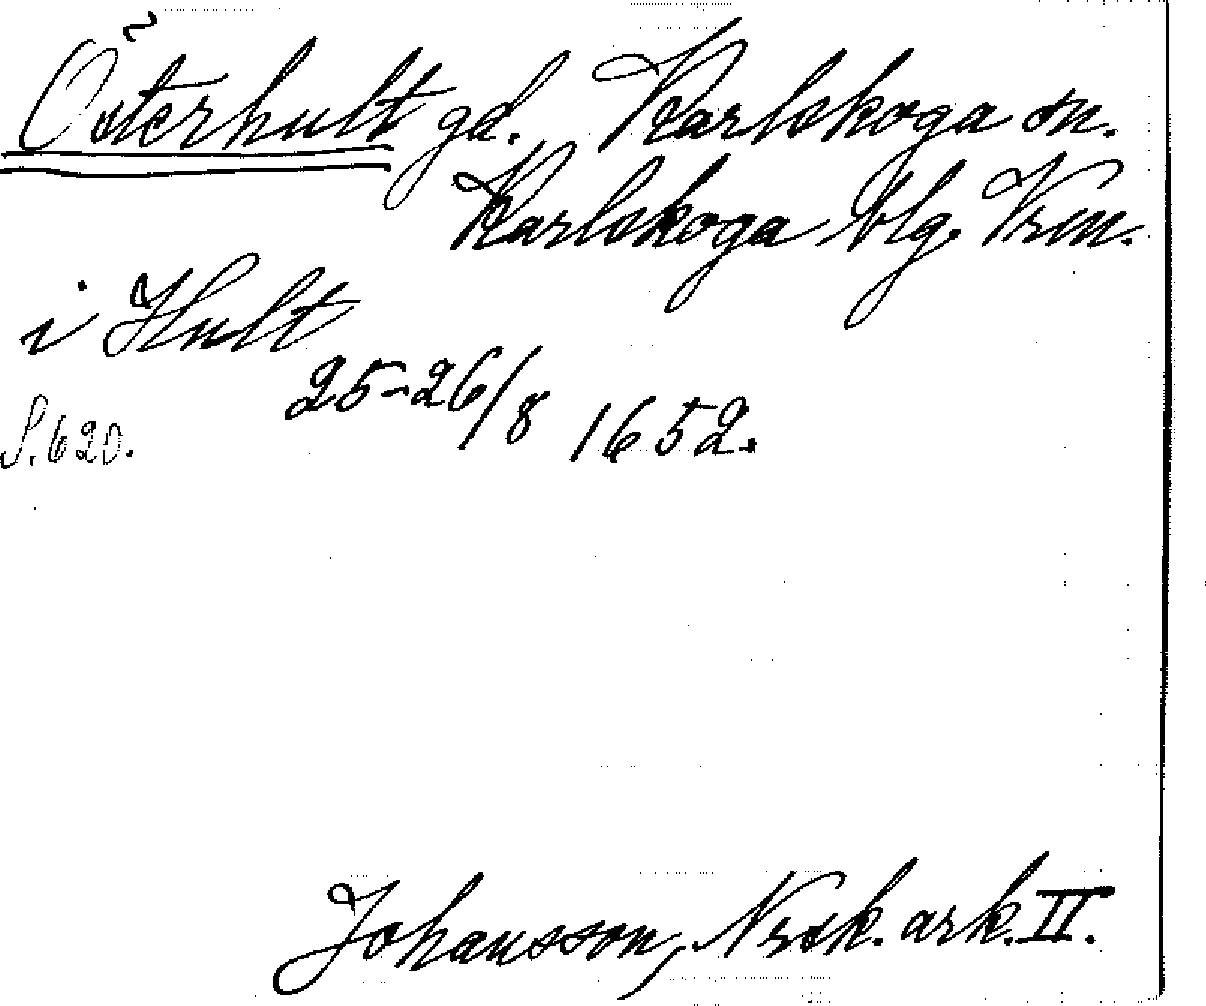 Österhult gd. Karlskoga sn.
Karlskoga blg. Vrm.
i Hult
25-26/8 1652.
S. 620.
Johansson, Nrsk. ark. II.